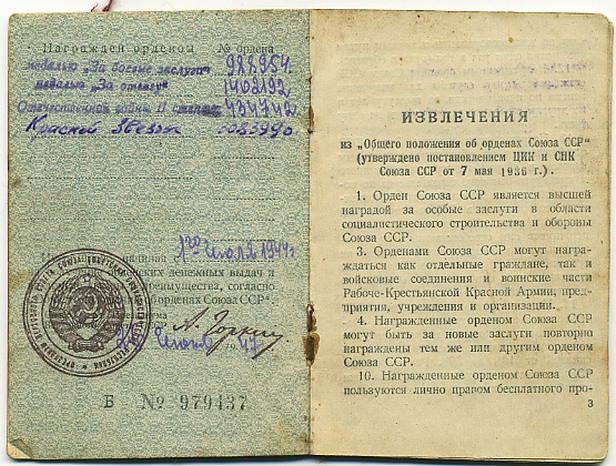 Награжден орденом № ордена
медалью „За боевые заслуги“ 988954.
медалью „За отвагу“ 1402192
Отечественной войны II степени 434742
Красной Звезды
1го Июля 1944г
денежных выдач и
преимущества, согласно
орденах Союза ССР".
А. Горкин
Июня 1947
Б № 979437
ИЗВЛЕЧЕНИЯ
из „Общего положения об орденах Союза ССР"
(утверждено постановлением ЦИК и СНК
Союза ССР от 7 мая 1936 г.).
1. Орден Союза ССР является высшей
наградой за особые заслуги в области
социалистического строительства и обороны
Союза ССР.
3. Орденами Союза ССР могут награж-
даться как отдельные граждане, так и
войсковые соединения и воинские части
Рабоче-Крестьянской Красной Армии, пред-
приятия, учреждения и организации.
4. Награжденные орденом Союза ССР
могут быть за новые заслуги повторно
награждены тем же или другим орденом
Союза ССР.
10. Награжденные орденом Союза ССР
пользуются лично правом бесплатного про-
3